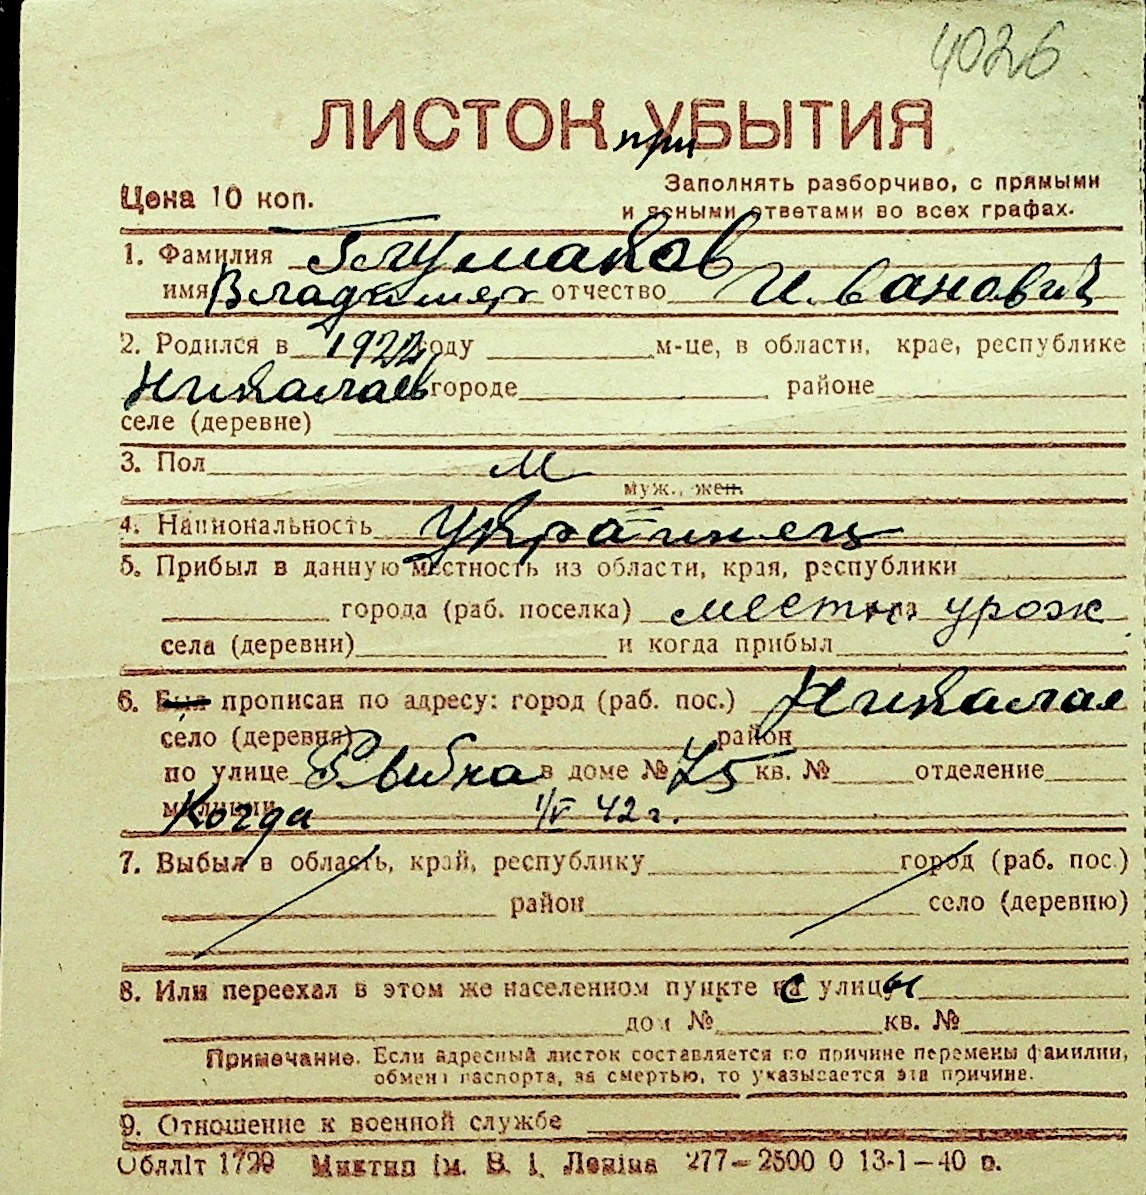 4026
ЛИСТОК УБЫТИЯ
при
Цена 10 коп.
Заполнять разборчиво, с прямыми
и ясными ответами во всех графах.
1. Фамилия Глумаков
имя Владимир отчество Иванович
2. Родился в 1922 году м-це, в области, крае, республике
Николаев городе районе
селе (деревне)
3. Пол м
муж., жен.
4. Национальность Украинец
5. Прибыл в данную местность из области, края, республики
города (раб. поселка) местн урож
села (деревни) и когда прибыл
6. Был прописан по адресу: город (раб. пос.) Николаев
село (деревня) район
по улице в доме № 75 кв. № отделение
милиции Когда 1/V 42 г.
7. Выбыл в область, край, республику город (раб. пос.)
район село (деревню)
8. Или переехал в этом же населенном пункте с улицы
дом № кв. №
Примечание. Если адресный листок составляется по причине перемены фамилии,
обмена паспорта, за смертью, то указывается эта причина.
9. Отношение к военной службе
Обллiт 1729 Миктип iм. В. I. Ленiна 277—2500 0 13-1—40 р.